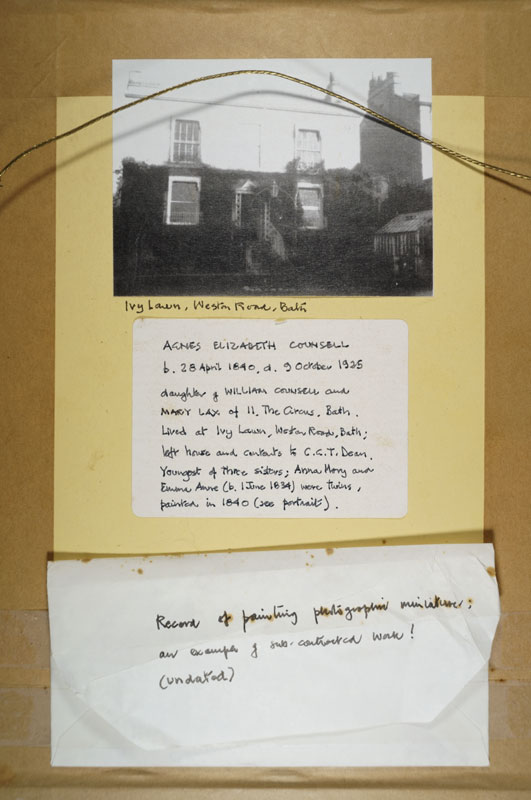 Ivy Lawn, Weston Road, Bath
AGNES ELIZABETH COUNSELL
b. 28 April 1840, d. 9 October 1925
daughter of WILLIAM COUNSELL and
MARY LAX of 11, The Circus, Bath.
Lived at Ivy Lawn, Weston Road, Bath;
left house and contents to C.C.T. Dean.
Youngest of three sisters; Anna Mary and
Emma Anne (b. 1 June 1834) were twins,
painted in 1840 (see portrait).
Record of painting photographic miniature;
an example of sub-contracted work!
(undated)